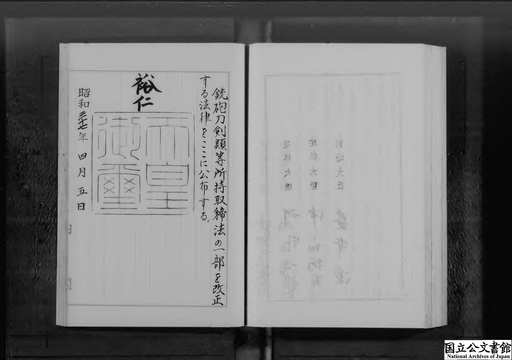 銃砲刀剣類等所持取締法の一部を改正
する法律をここに公布する。
裕仁
天皇
御璽
昭和三十七年四月五日
国立公文書館
National Archives of Japan